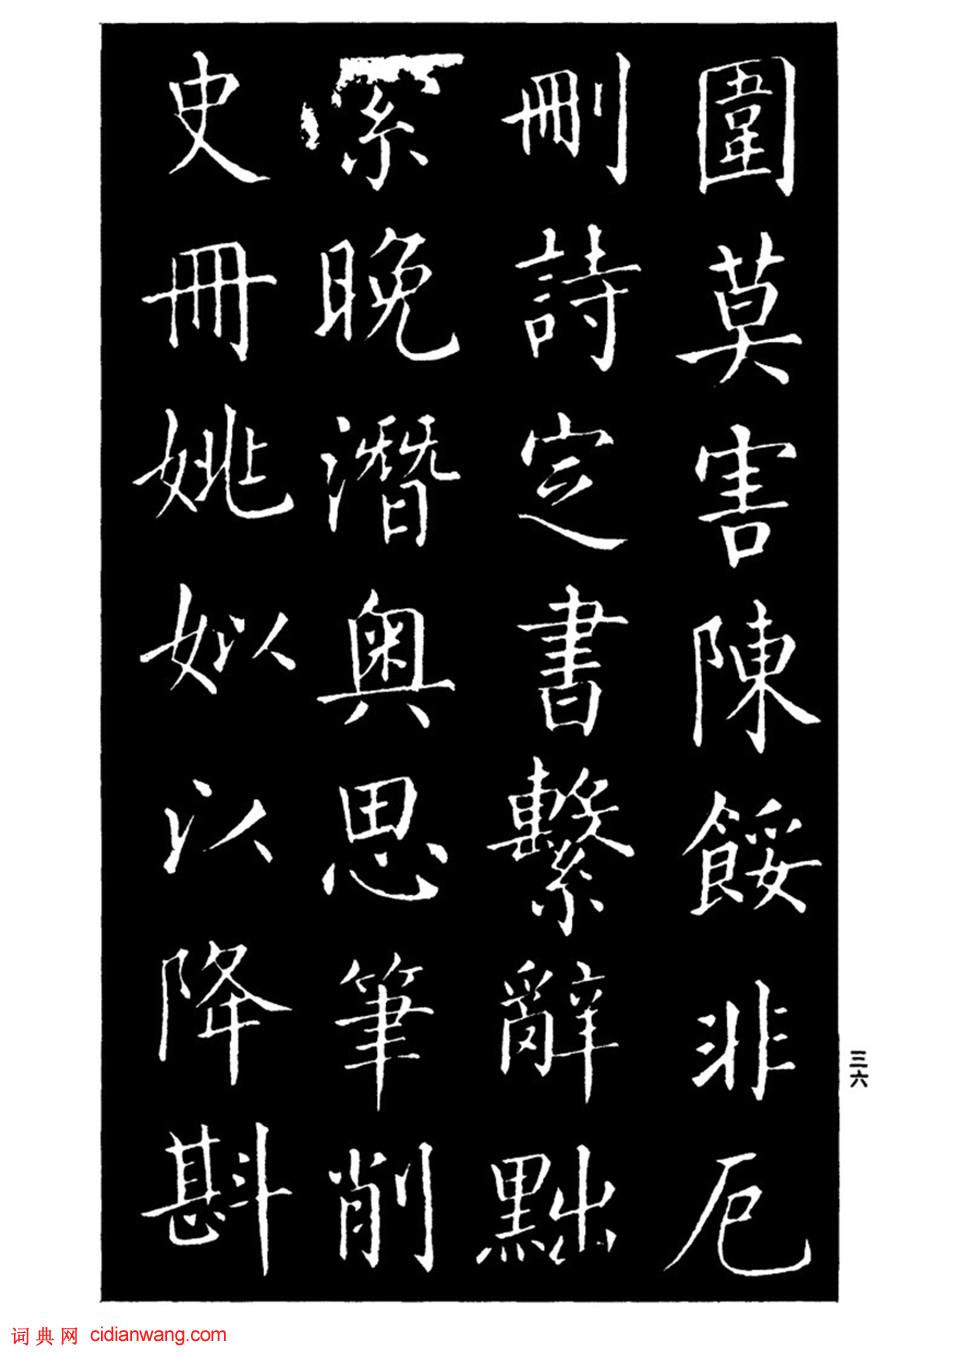 圍莫害陳餒非厄
刪詩定書繫辭黜
索晚潛奧思筆削
史冊姚姒以降斟
三六
词典网 cidianwang.com